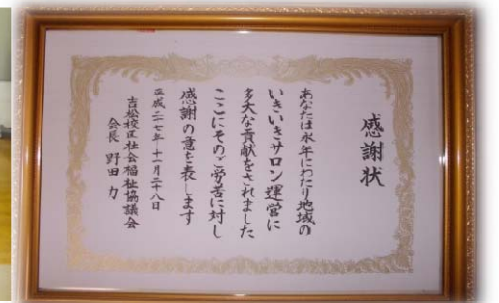 感謝状
あなたは永年にわたり地域の
いきいきサロン運営に
多大な貢献をされました
ここにそのご労苦に対し
感謝の意を表します
平成二十七年十一月二十八日
吉松校区社会福祉協議会
会長 野田 力